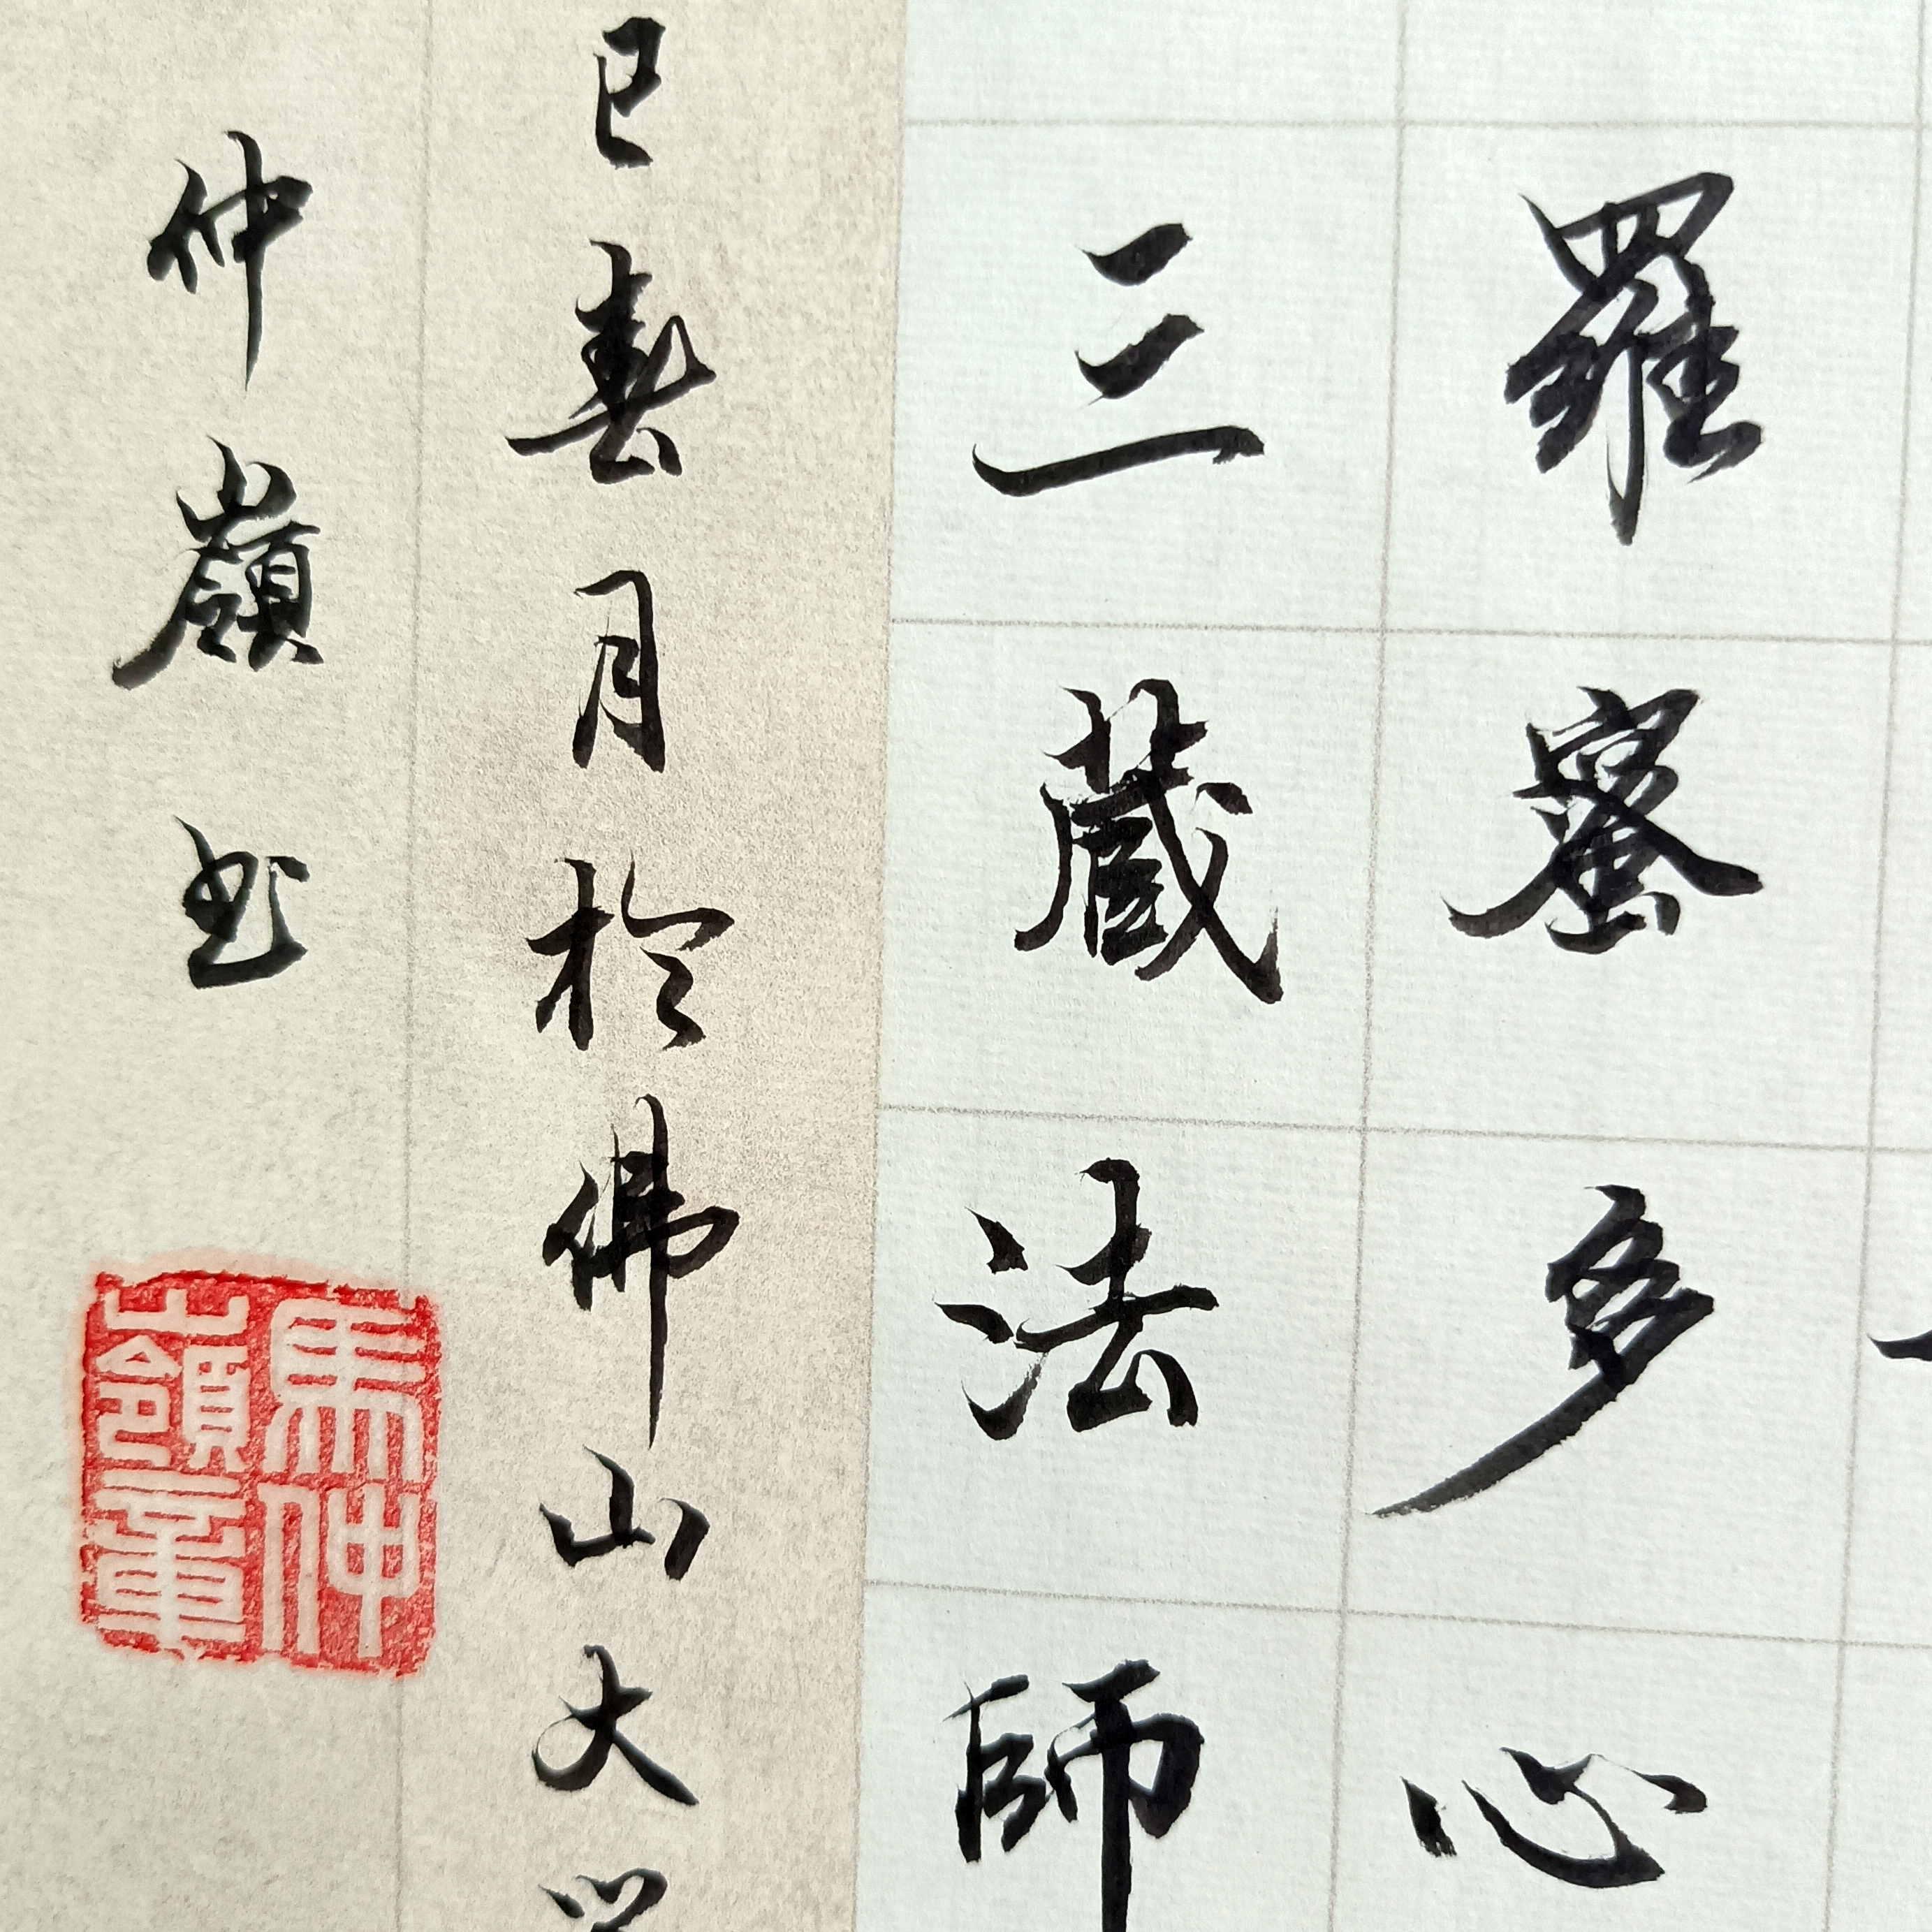 羅蜜多心
三藏法師
巳春月於佛山大
仲嶺书
馬仲
嶺章